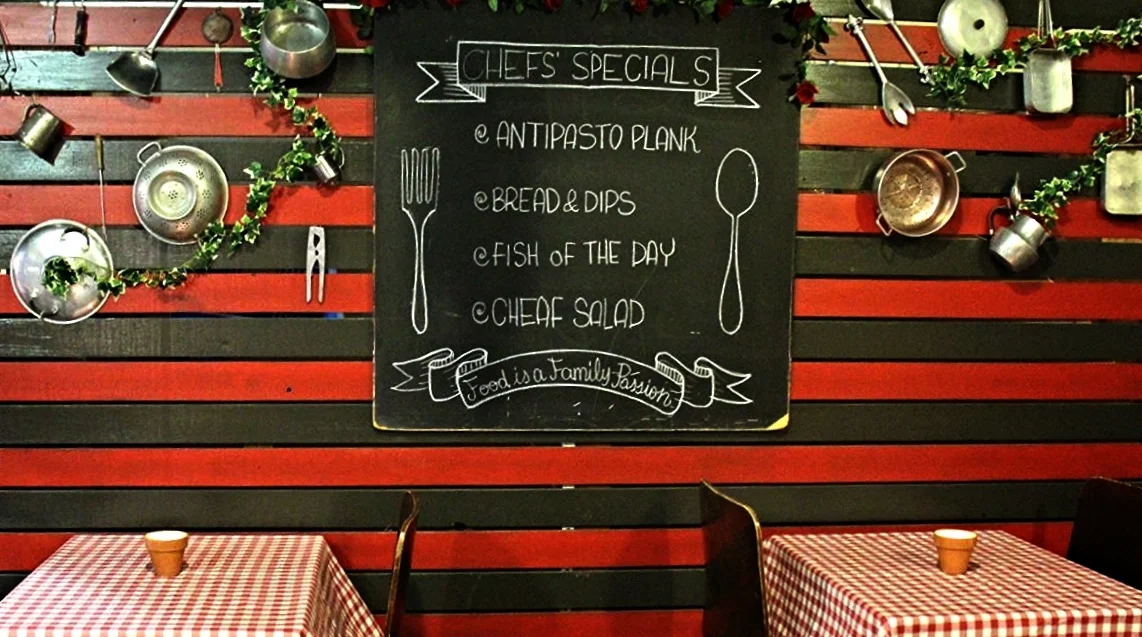 CHEFS' SPECIALS
@ ANTIPASTO PLANK
@ BREAD & DIPS
@ FISH OF THE DAY
@ CHEAF SALAD
Food is a Family Passion